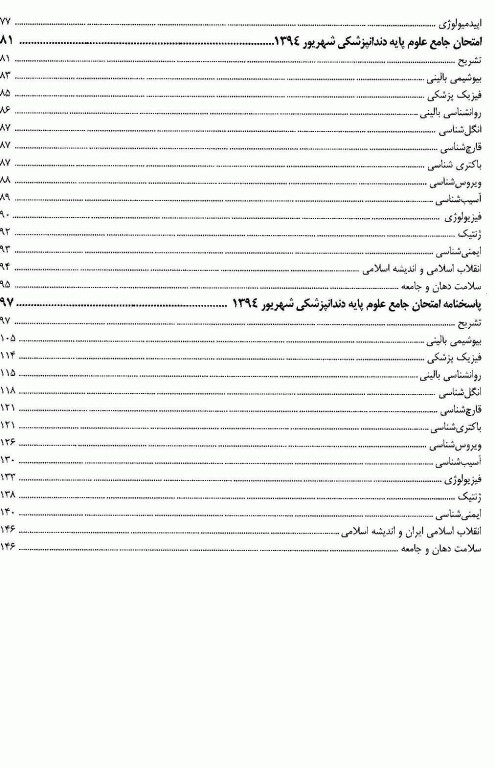 اپیدمیولوژی ........ ۷۷
امتحان جامع علوم پایه دندانپزشکی شهریور ۱۳۹۴ ........ ۸۱
تشریح ........ ۸۱
بیوشیمی بالینی ........ ۸۳
فیزیک پزشکی ........ ۸۵
روانشناسی بالینی ........ ۸۶
انگل‌شناسی ........ ۸۷
قارچ‌شناسی ........ ۸۷
باکتری شناسی ........ ۸۷
ویروس‌شناسی ........ ۸۸
آسیب‌شناسی ........ ۸۹
فیزیولوژی ........ ۹۰
ژنتیک ........ ۹۲
ایمنی‌شناسی ........ ۹۳
انقلاب اسلامی و اندیشه اسلامی ........ ۹۴
سلامت دهان و جامعه ........ ۹۵
پاسخنامه امتحان جامع علوم پایه دندانپزشکی شهریور ۱۳۹۴ ........ ۹۷
تشریح ........ ۹۷
بیوشیمی بالینی ........ ۱۰۵
فیزیک پزشکی ........ ۱۱۴
روانشناسی بالینی ........ ۱۱۵
انگل‌شناسی ........ ۱۱۸
قارچ‌شناسی ........ ۱۲۱
باکتری‌شناسی ........ ۱۲۱
ویروس‌شناسی ........ ۱۲۶
آسیب‌شناسی ........ ۱۳۰
فیزیولوژی ........ ۱۳۳
ژنتیک ........ ۱۳۸
ایمنی‌شناسی ........ ۱۴۰
انقلاب اسلامی ایران و اندیشه اسلامی ........ ۱۴۶
سلامت دهان و جامعه ........ ۱۴۶